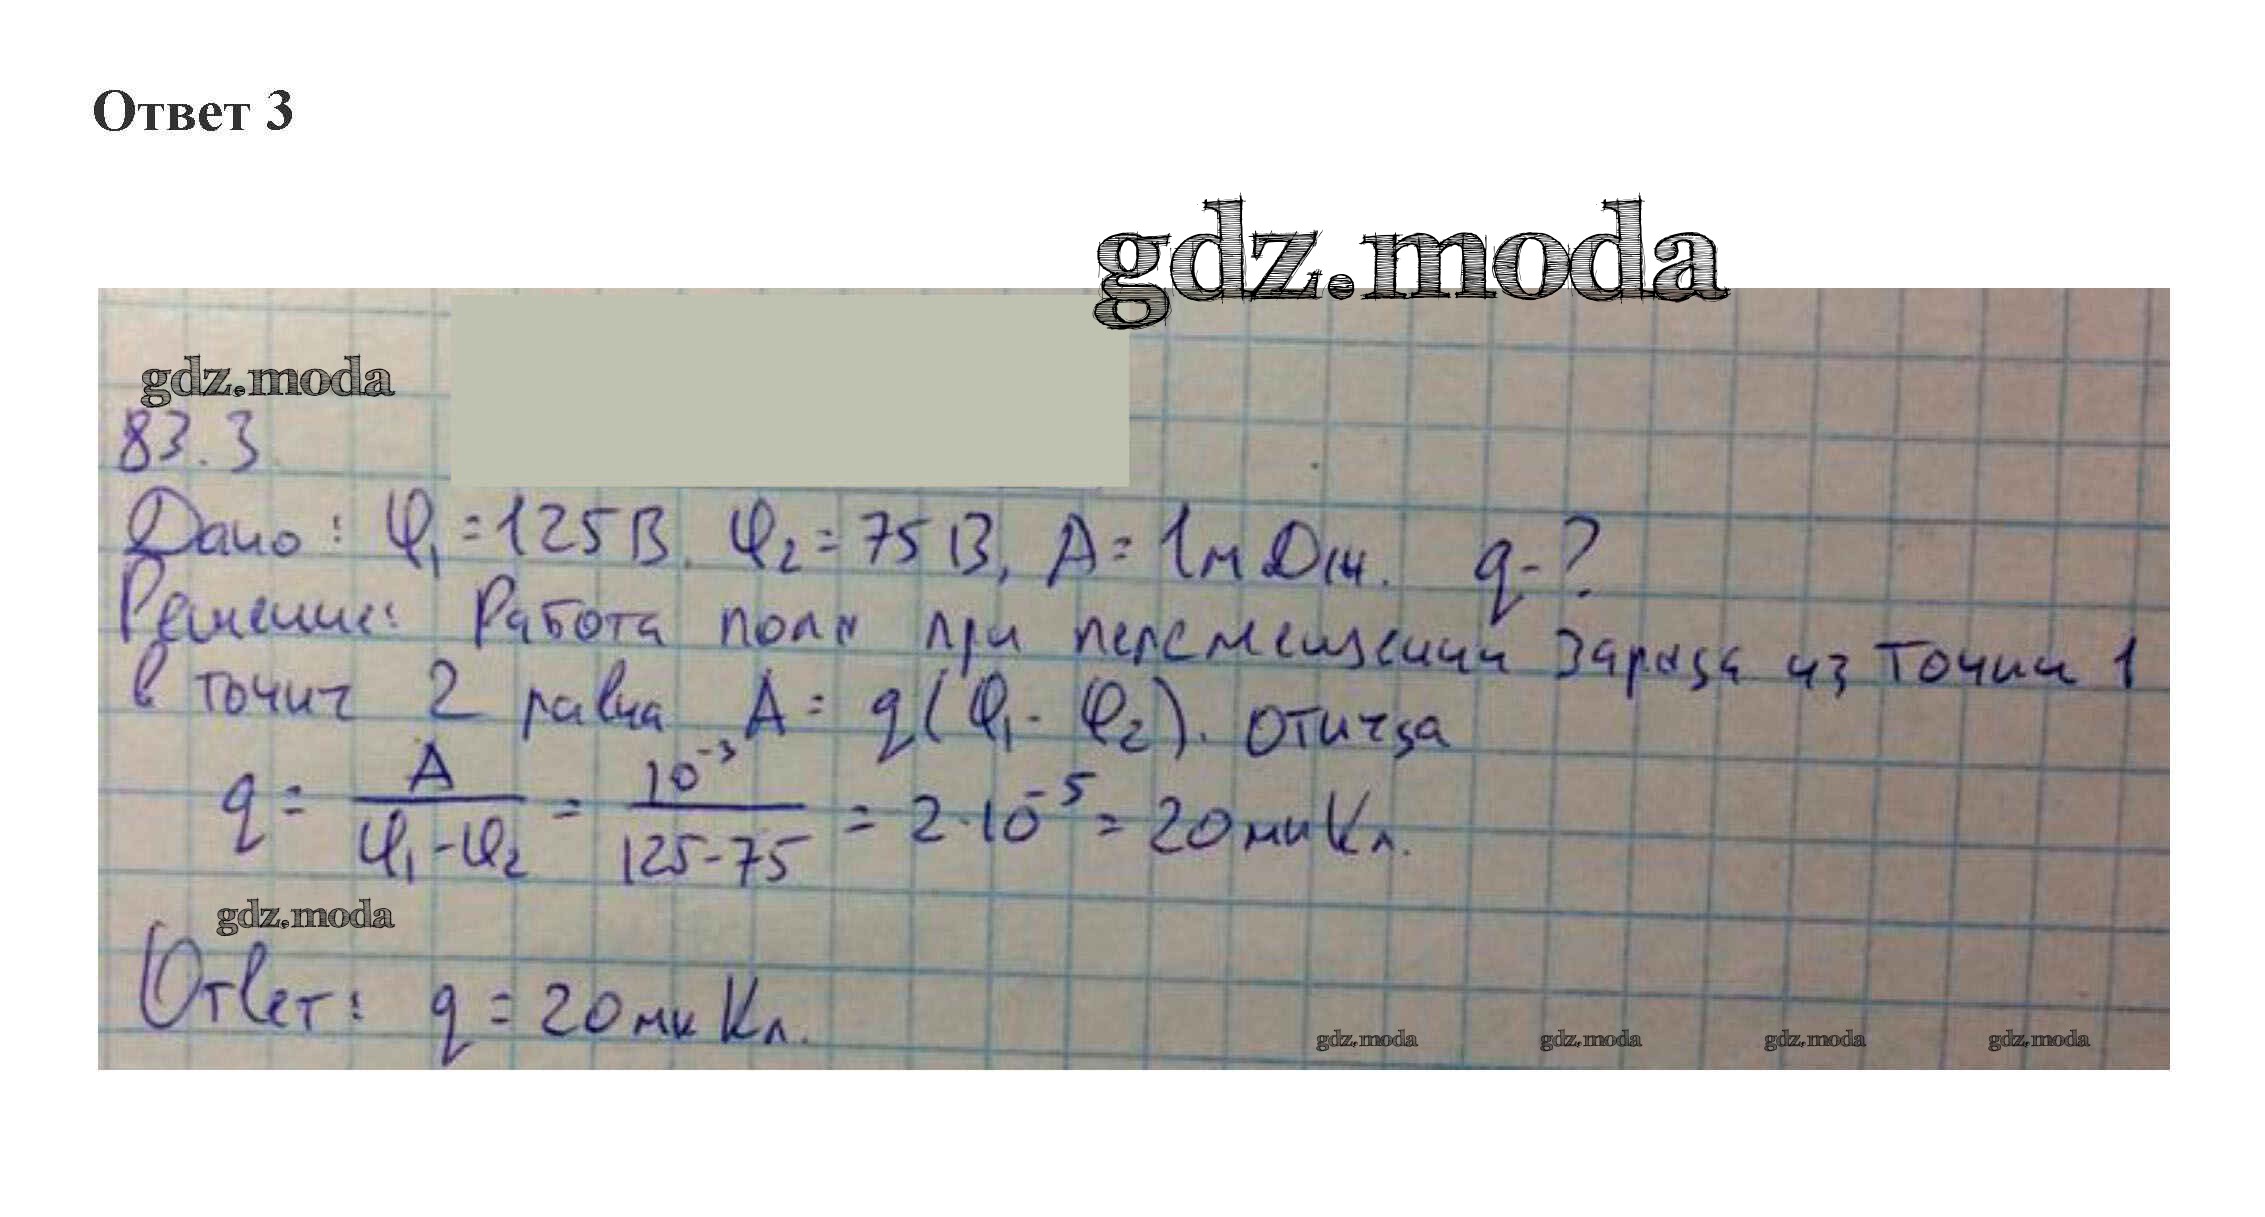 Ответ 3
gdz.moda
gdz.moda
83.3
Дано: φ₁ = 125 В. φ₂ = 75 В, A = 1 мДж. q - ?
Решение: Работа поля при перемещении заряда из точки 1
в точку 2 равна A = q(φ₁ - φ₂). откуда
q = A / (φ₁ - φ₂) = 10⁻³ / (125 - 75) = 2·10⁻⁵ = 20 мкКл.
gdz.moda
Ответ: q = 20 мкКл.
gdz.moda gdz.moda gdz.moda gdz.moda